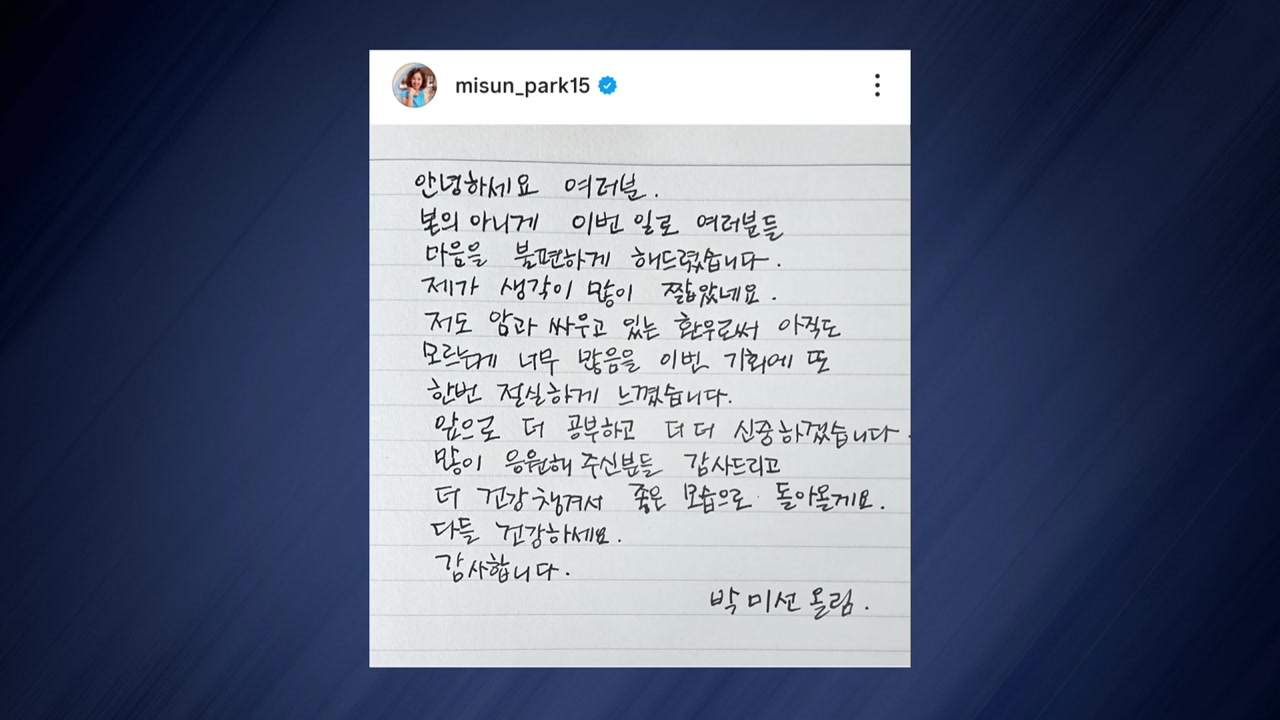 misun_park15
안녕하세요 여러분.
본의 아니게 이번 일로 여러분들
마음을 불편하게 해드렸습니다.
제가 생각이 많이 짧았네요.
저도 암과 싸우고 있는 환우로써 아직도
모르는게 너무 많음을 이번 기회에 또
한번 절실하게 느꼈습니다.
앞으로 더 공부하고 더 더 신중하겠습니다.
많이 응원해 주신분들 감사드리고
더 건강 챙겨서 좋은 모습으로 돌아올게요.
다들 건강하세요.
감사합니다.
박미선 올림.